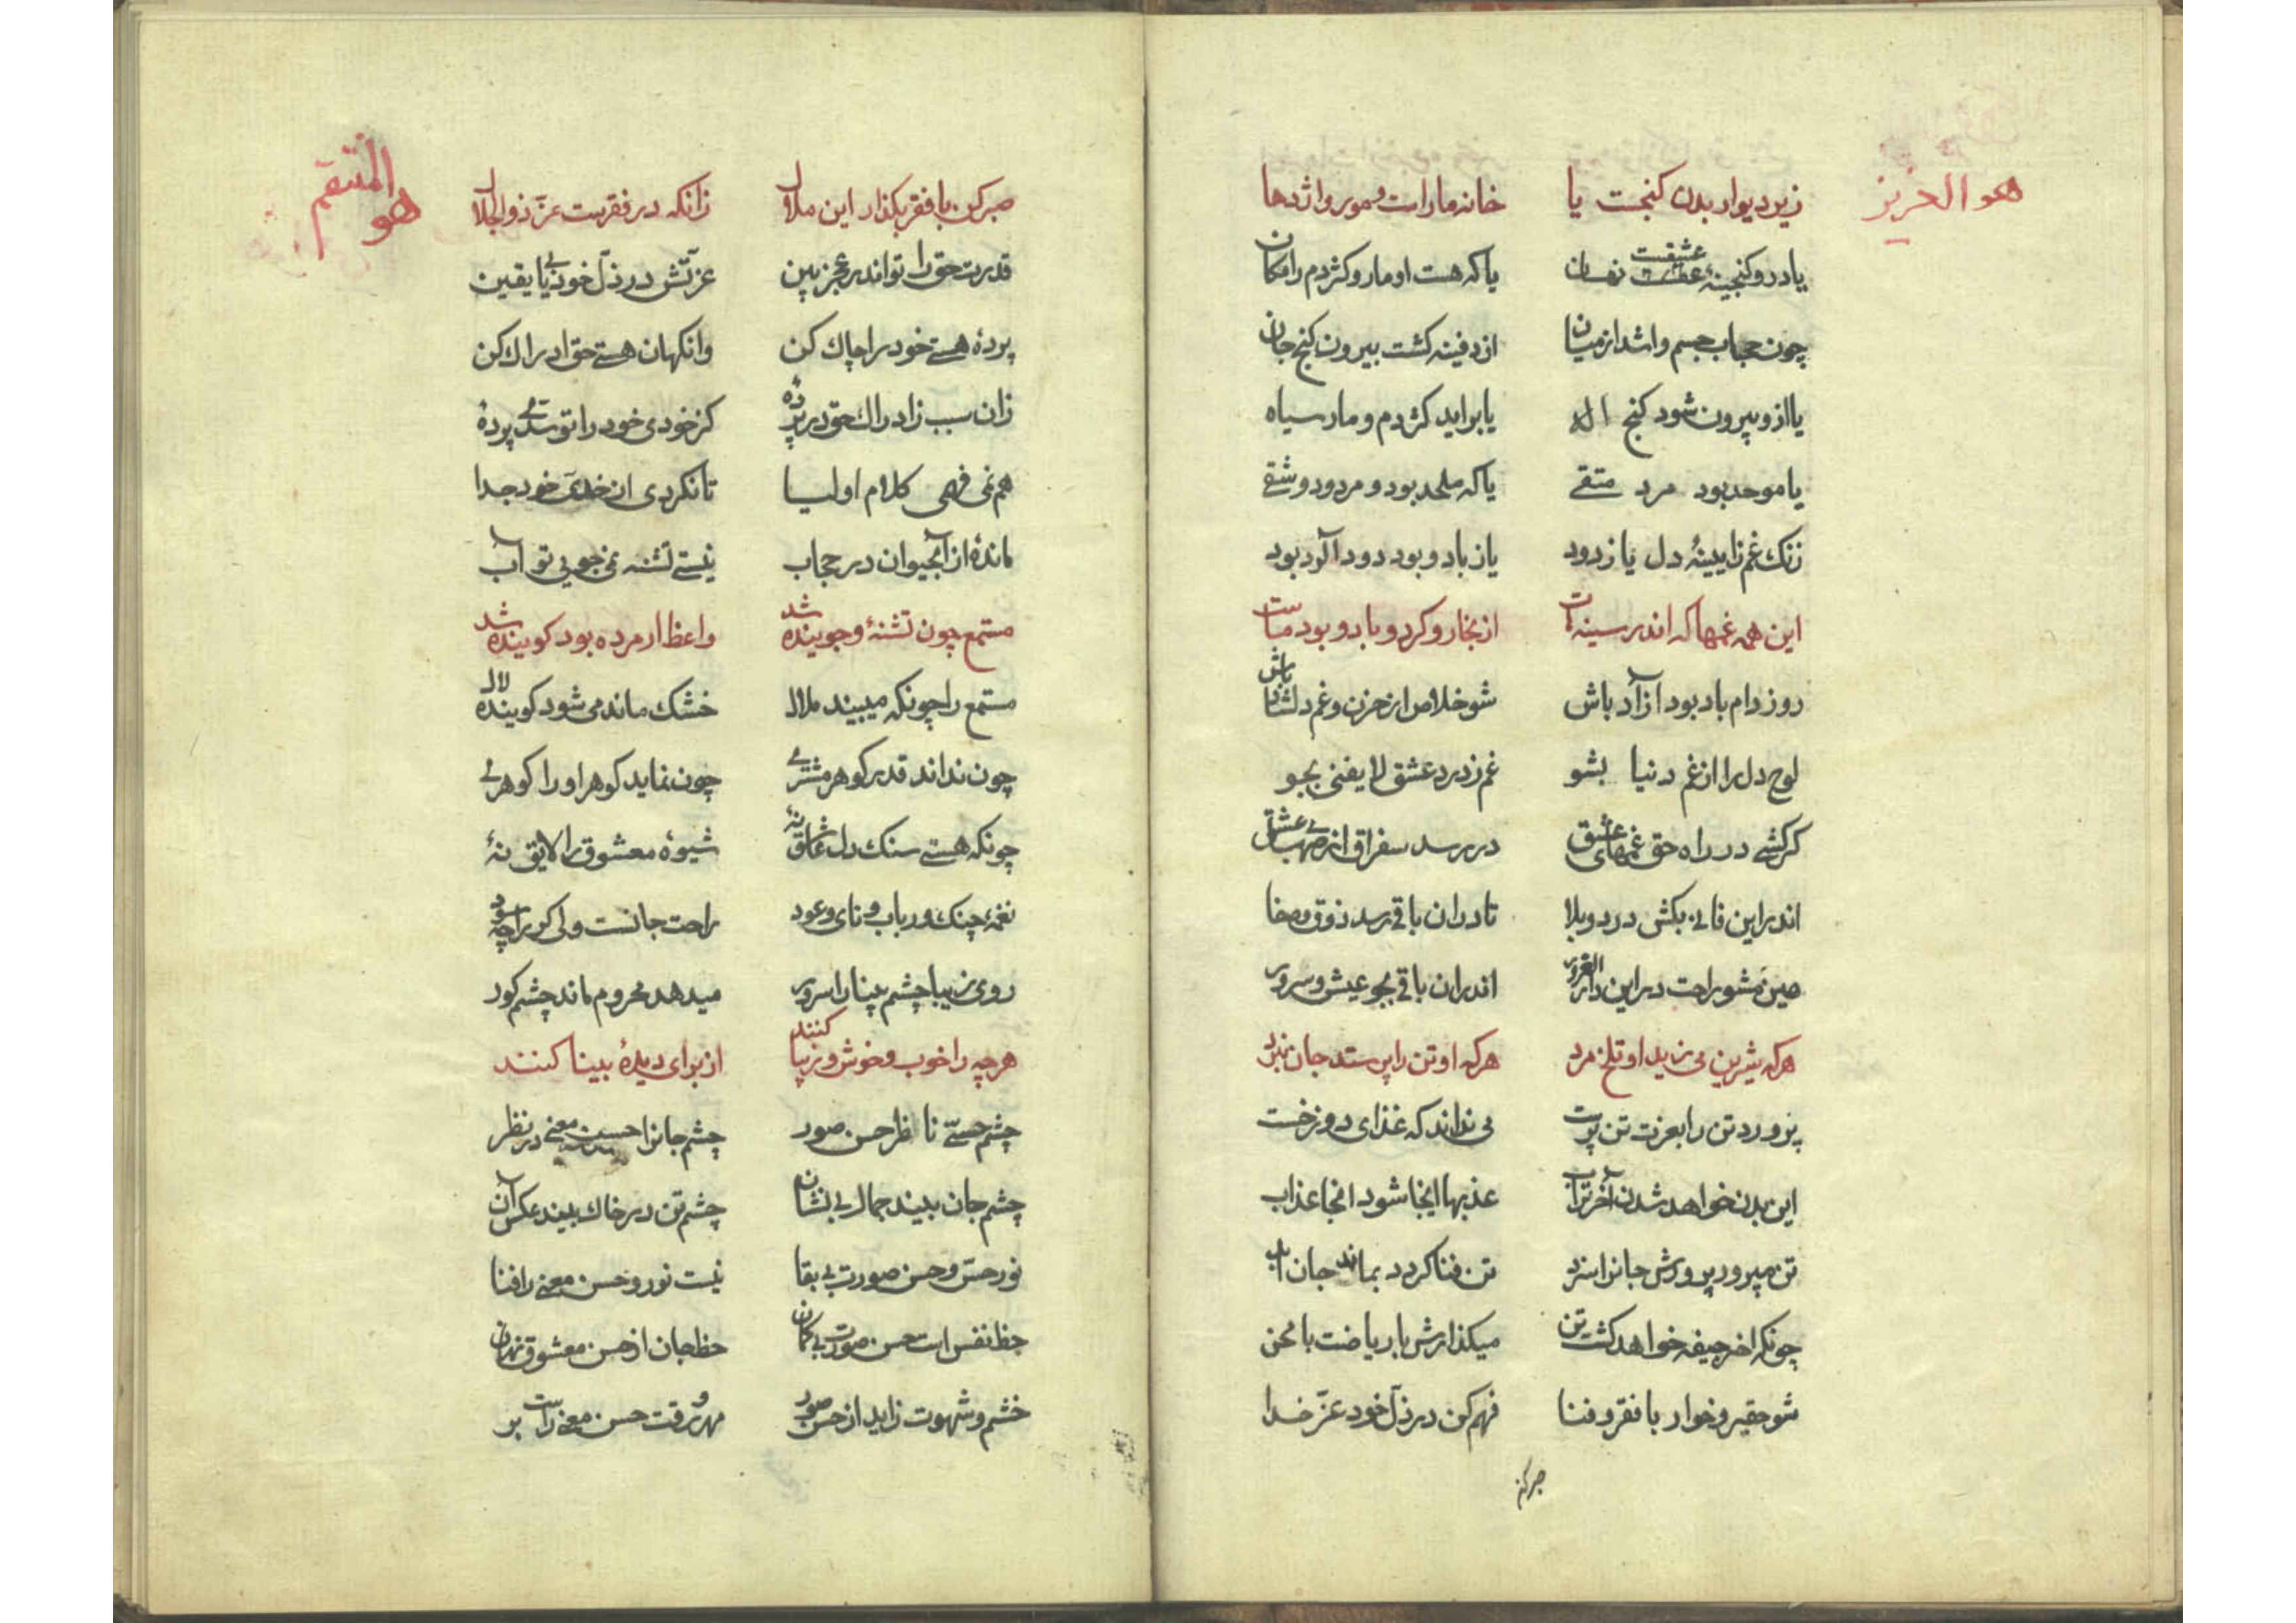 هو العزیز
زیر دیوار بدن کنجست یا    خانه مار است و مور و اژدها
یا در و کنجینهٔ عشقست نهان    یا که هست او مار و کژدم را مکان
چون حجاب جسم واشد از میان    از دفینه کشت بیرون کنج جان
یا ازو بیرون شود کنج اله    یا براید کژدم و مار سیاه
یا موحد بود مرد متقے    یا که ملحد بود و مردود و شقے
زنك غم زایینهٔ دل یا زدود    یا ز باد و بود دود آلود بود
این همه غمها که اندر سینهاست    از بخار و کرد و باد و بود ماست
روز دام باد بود آزاد باش    شو خلاص از حزن و غم دلشاد باش
لوح دل را از غم دنیا بشو    غم ز درد عشق لا یفنی بجو
کر کشے در راه حق غمهای عشق    در رسد سغراق از صهبای عشق
اندر این فانے بکش درد و بلا    تا در ان باقے رسد ذوق و صفا
هین مشو راحت در این دار الغرور    اندر ان باقے بجو عیش و سرور
هر که شیرین می زید او تلخ مرد    هر که او تن را پرستد جان نبرد
پرورد تن را بعزت تن پرست    می نداند که غذای دوزخست
این بدن خواهد شدن آخر تراب    عذبها اینجا شود انجا عذاب
تن مپرور پرورش جانرا سزد    تن فنا کردد بماند جان ابد
چونکه اخر جیفه خواهد کشت تن    میکذارش با ریاضت با محن
شو حقیر و خوار با فقر و فنا    فهم کن در ذلّ خود عزّ خدا
صبر کن
هو المنتقم
صبر کن با فقر بکذار این ملال    زانکه در فقرست عزّ ذو الجلال
قدرت حق را تو اندر عجز بین    عزّتش در ذلّ خود بے یا یقین
پردهٔ هستے خود را چاك کن    وانکهان هستے حق ادراك کن
زان سبب زادراك حق در پردهٔ    کز خودی خود را تو سدّے پردهٔ
هم نمی فهمی کلام اولیا    تا نکردی از خودیّ خود جدا
ماندهٔ از آبحیوان در حجاب    نیستے تشنه نمی جویی تو آب
مستمع چون تشنهٔ و جوینده شد    واعظ ار مرده بود کوینده شد
مستمع را چونکه میبیند ملال    خشك ماند می شود کوینده لال
چون نداند قدر کوهر مشترے    چون نماید کوهر او را کوهرے
چونکه هستے سنك دل عاشق نهٔ    شیوهٔ معشوق را لایق نهٔ
نغمهٔ چنك و رباب و نای و عود    راحت جانست ولی کر را چه سود
روی زیبا چشم بینا را سرور    میدهد محروم ماند چشم کور
هر چه را خوب و خوش و زیبا کنند    از برای دیدهٔ بینا کنند
چشم حسّے ناظر حسن صور    چشم جانرا حسن معنے در نظر
چشم جان بیند جمال بے نشان    چشم تن در خاك بیند عکس آن
نور حسّ و حسن صورت بے بقا    نیست نور و حسن معنے را فنا
حظ نفس است حسن صورت بے کمان    حظ جان از حسن معشوق نهان
خشم و شهوت زاید از حسن صور    مهر و رقت حسن معنے راست بر